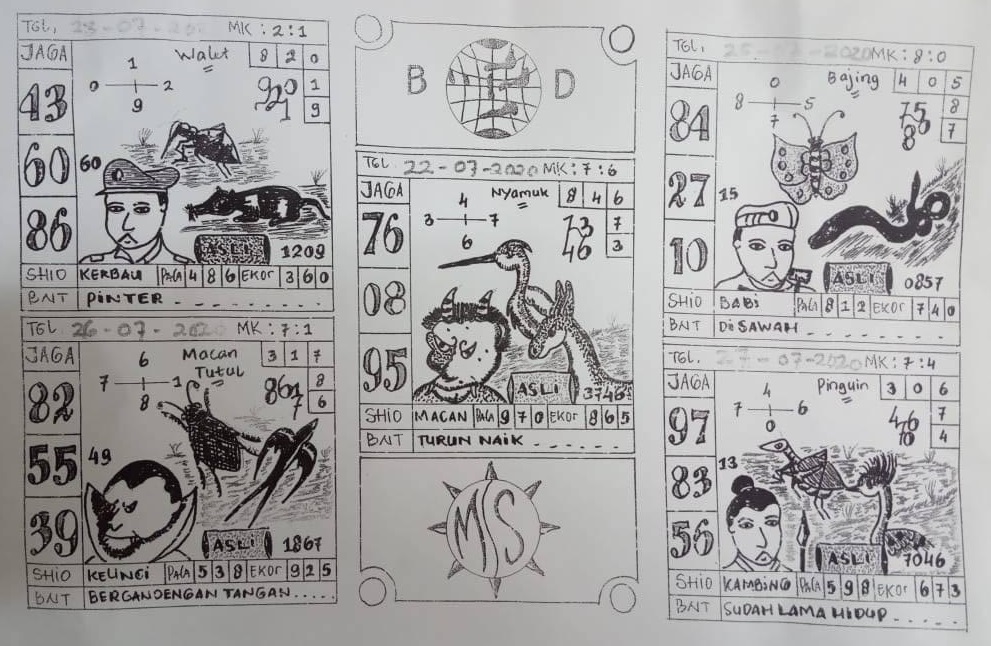 TGL, 23-07-202 MK : 2:1
JAGA
43
60
86
Walet
8 2 0
1
0 2
9
920
1
1
9
60
ASLI
1209
SHIO KERBAU PALA 4 8 6 EKOR 3 6 0
BNT PINTER - - - - - - - -
TGL 26-07-2020 MK : 7:1
JAGA
82
55
39
Macan
Tutul
3 1 7
6
7 1
8
861
7
8
6
49
ASLI
1867
SHIO KELINCI PALA 5 3 8 EKOR 9 2 5
BNT BERGANDENGAN TANGAN.....
B D
TGL 22-07-2020 MK : 7:6
JAGA
76
08
95
Nyamuk
8 4 6
4
3 7
6
73
46
7
3
ASLI
3746
SHIO MACAN PALA 9 7 0 EKOR 8 6 5
BNT TURUN NAIK - - - - - -
MS
TGL, 25-07-2020 MK : 8:0
JAGA
84
27
10
Bajing
4 0 5
0
8 5
7
8
7
15
ASLI
0857
SHIO BABI PALA 8 1 2 EKOR 7 4 0
BNT DI SAWAH - - - - - - -
TGL. 27-07-2020 MK : 7:4
JAGA
97
83
56
Pinguin
3 0 6
4
7 6
0
46
7
4
13
ASLI
7046
SHIO KAMBING PALA 5 9 8 EKOR 6 7 3
BNT SUDAH LAMA HIDUP - - - - -